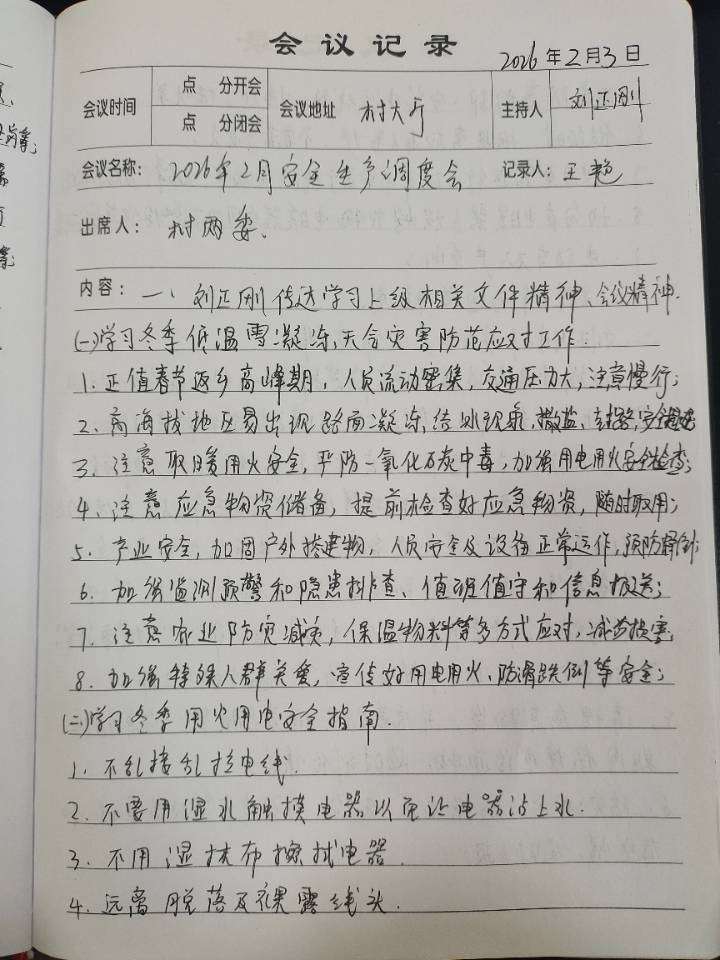 会议记录
2026年2月3日
会议时间 点 分开会 点 分闭会 会议地址 村大厅 主持人 刘正刚
会议名称: 2026年2月安全生产调度会 记录人: 王艳
出席人: 村两委.
内容: 一、刘正刚传达学习上级相关文件精神、会议精神.
(一)学习冬季低温雪凝冻天气灾害防范应对工作.
1. 正值春节返乡高峰期, 人员流动密集, 交通压力大, 注意慢行;
2. 高海拔地区易出现路面凝冻, 结冰现象, 撒盐、封路, 安全
3. 注意取暖用火安全, 严防一氧化碳中毒, 加强用电用火安全检查;
4. 注意应急物资储备, 提前检查好应急物资, 随时取用;
5. 产业安全, 加固户外搭建物, 人员安全及设备正常运作, 预防
6. 加强监测预警和隐患排查、值班值守和信息报送;
7. 注意农业防灾减灾, 保温物料等多方式应对, 减益损害
8. 加强特殊人群关爱, 宣传好用电用火、防滑跌倒等安全;
(二)学习冬季用火用电安全指南.
1. 不乱接乱拉电线.
2. 不要用湿水触摸电器以免让电器沾上水.
3. 不用湿抹布擦拭电器.
4. 远离脱落及裸露线头.